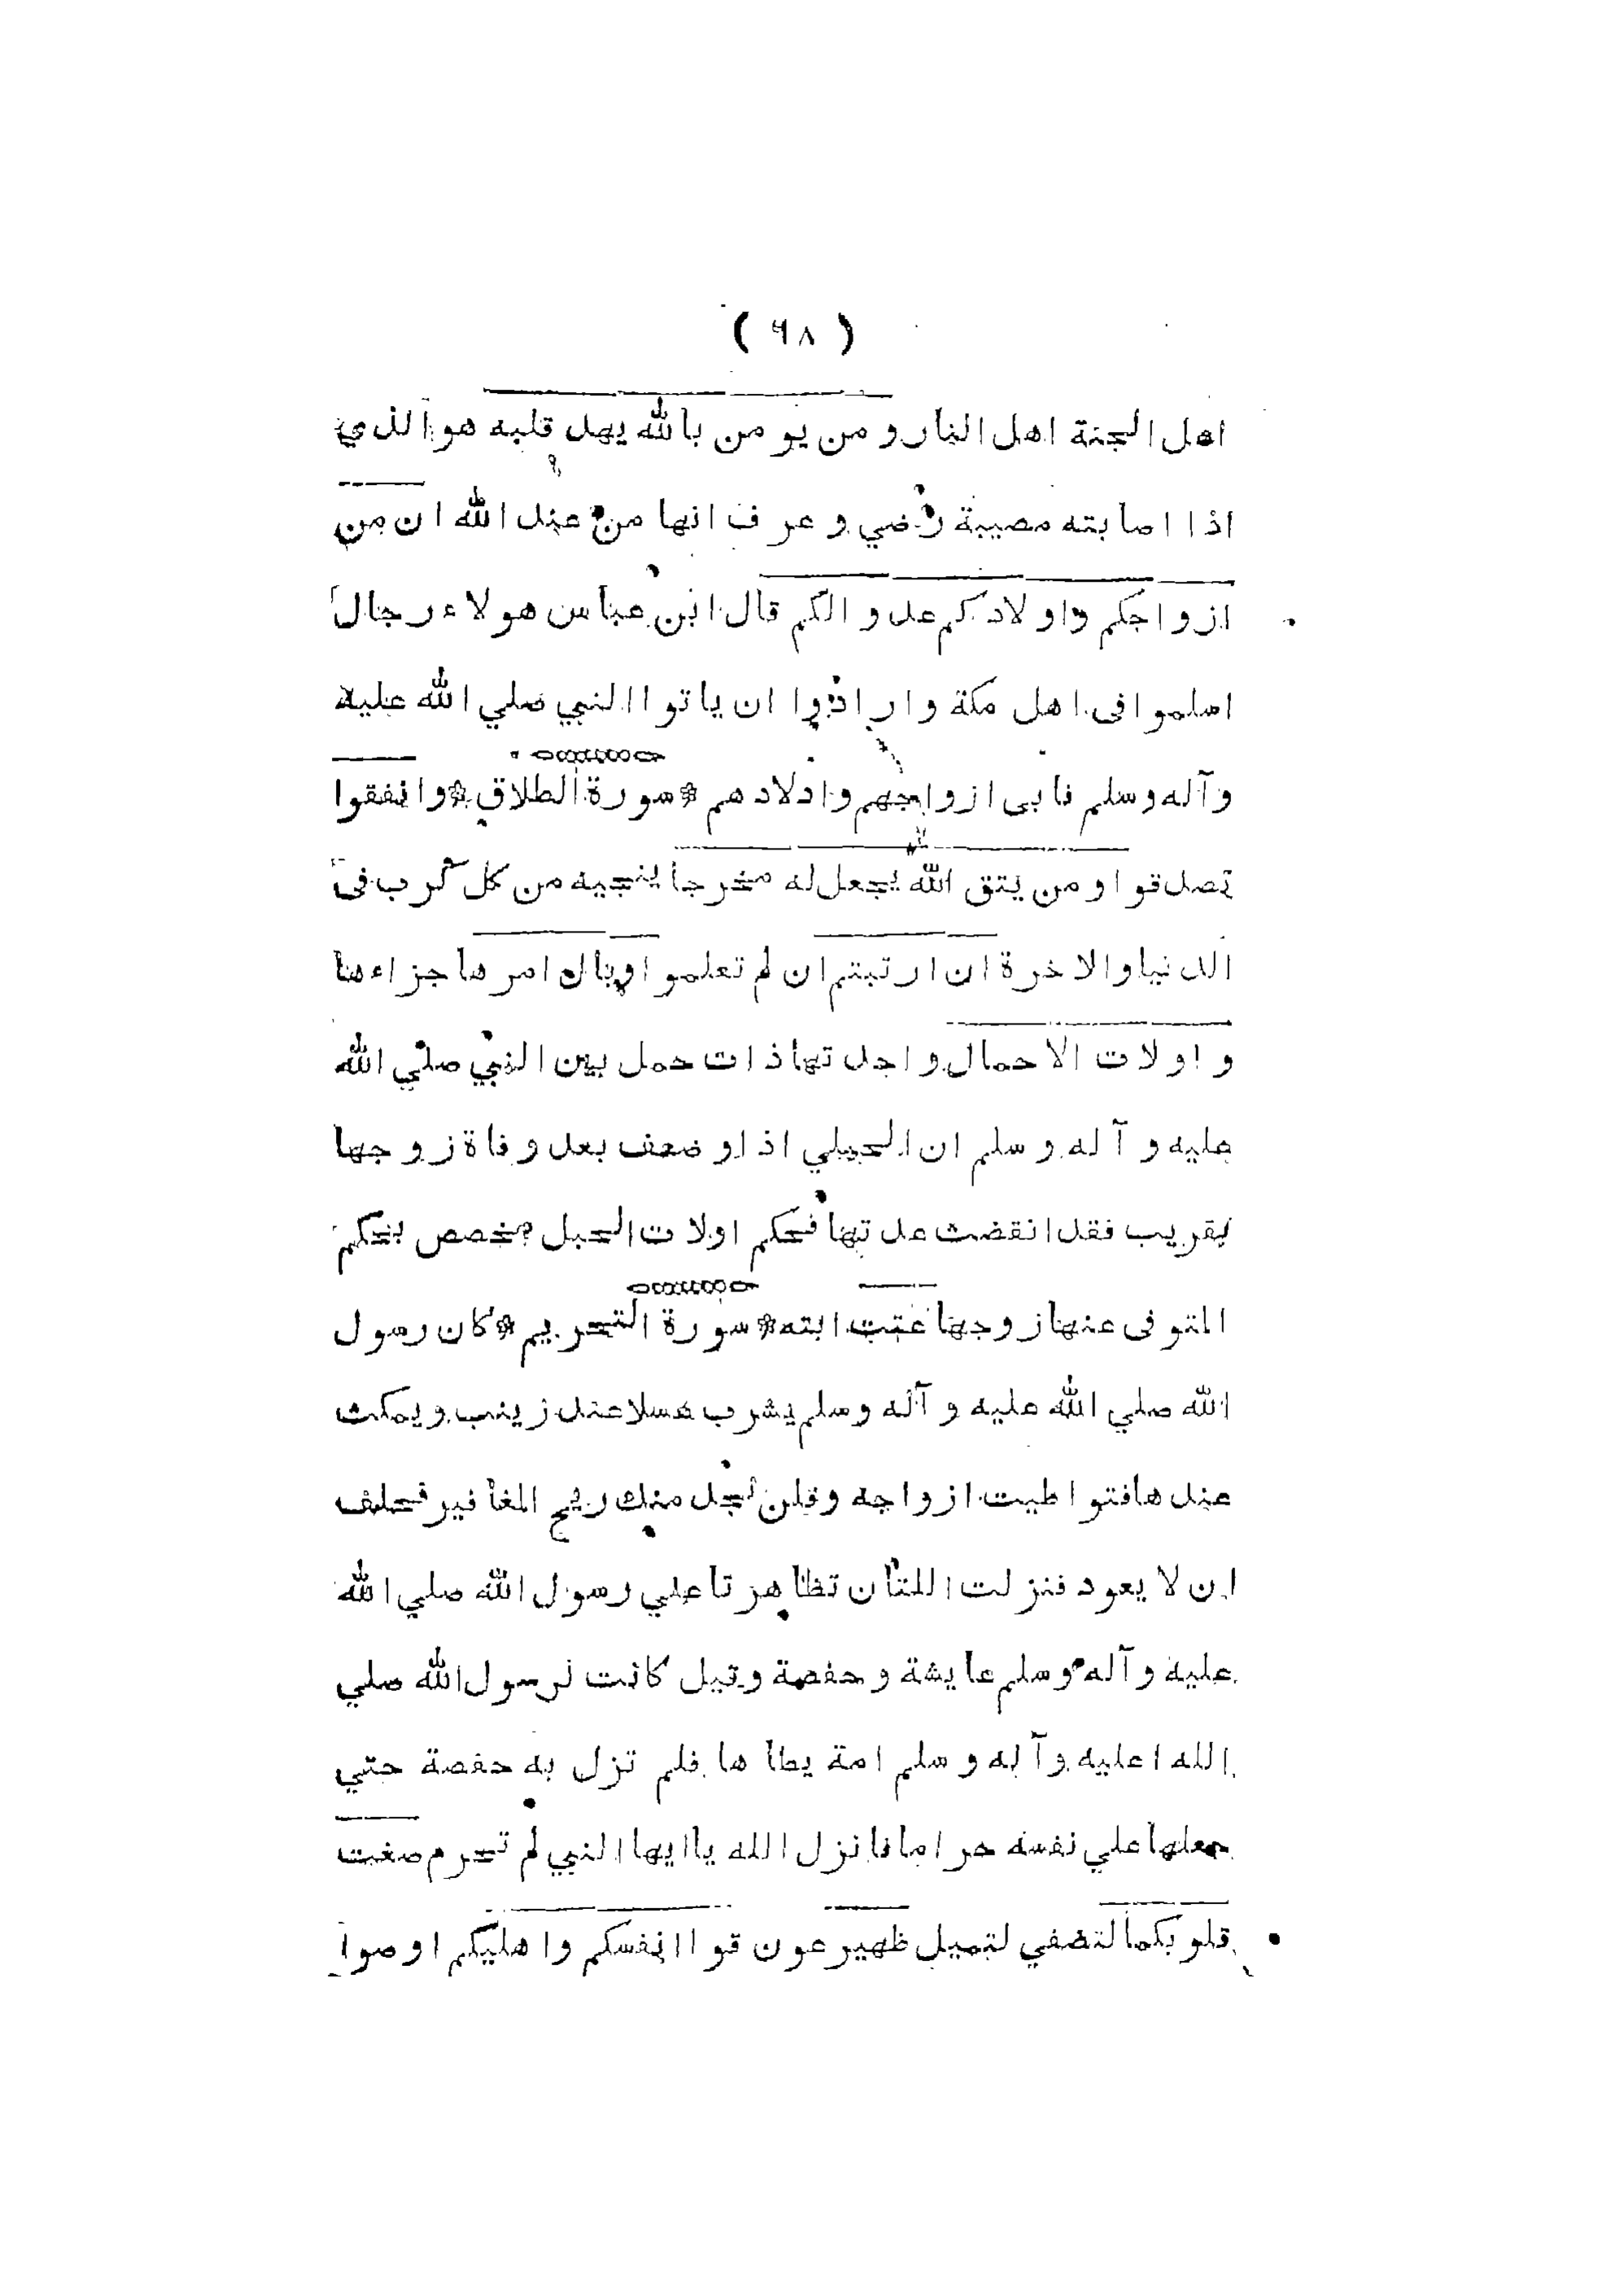 ( ٩٨ )
اهل الجنة اهل النار ومن يومن بالله يهد قلبه هو الذي
اذا اصابته مصيبة رضي وعرف انها من عند الله ان من
ازواجكم واولادكم عدوالكم قال ابن عباس هولاء رجال
اسلموا فى اهل مكة وارادوا ان ياتوا النبي صلي الله عليه
وآله وسلم فابى ازواجهم وادلادهم * سورة الطلاق * وانفقوا
تصدقوا ومن يتق الله يجعل له مخرجا ينجيه من كل كرب فى
الدنيا والاخرة ان ارتبتم ان لم تعلموا وبال امرها جزاءها
واولات الاحمال واحدتها ذات حمل بين النبي صلي الله
عليه وآله وسلم ان الحبلي اذا وضعف بعد وفاة زوجها
بقريب فقد انقضت عدتها فحكم اولات الحبل مخصص بحكم
المتوفى عنها زوجها عتت ابته * سورة التحريم * كان رسول
الله صلي الله عليه وآله وسلم يشرب عسلا عند زينب ويمكث
عندها فتواطيت ازواجه وقلن نجد منك ريح المغافير فحلف
ان لا يعود فنزلت اللتان تظاهرتا علي رسول الله صلي الله
عليه وآله وسلم عايشة وحفصة وقيل كانت لرسول الله صلي
الله اعليه وآله وسلم امة يطاها فلم تزل به حفصة حتي
جعلها علي نفسه حراما فانزل الله يا ايها النبي لم تحرم صغت
قلوبكما لتضفي لتميل ظهير عون قوا انفسكم واهليكم اوصوا